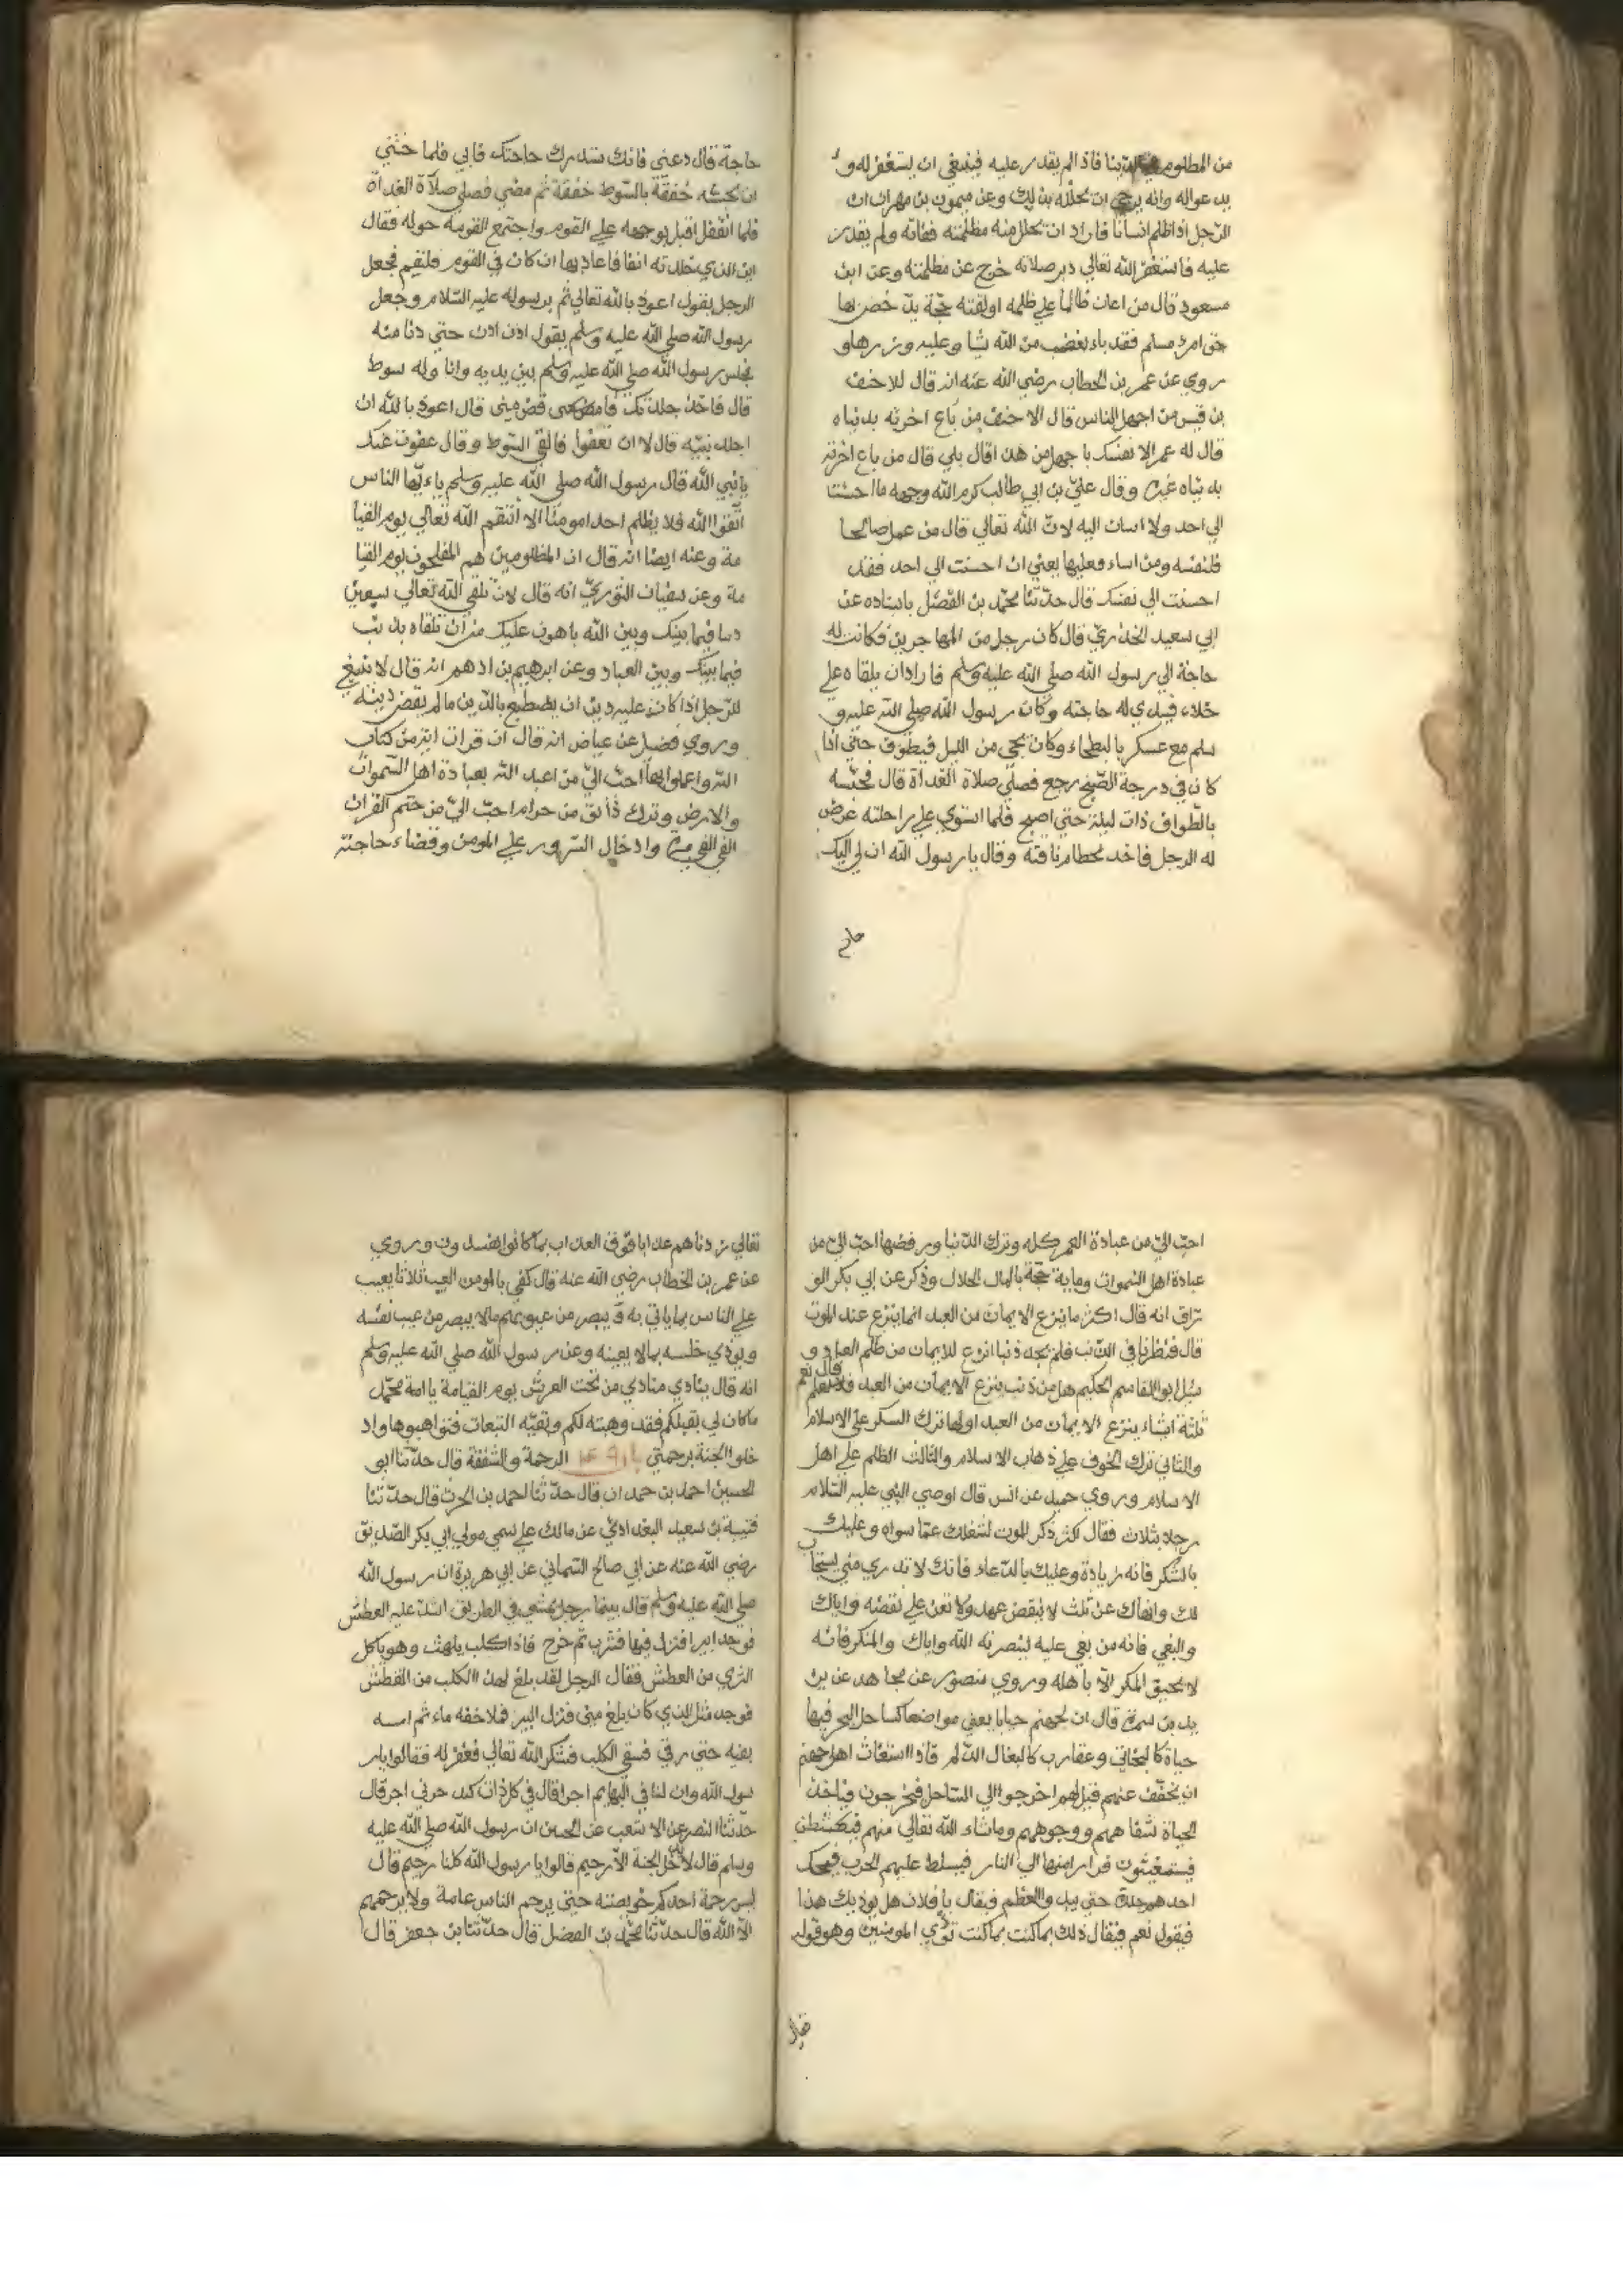 من المطلوم بنا فاذا لم يقدر عليه فينبغي ان يستغفر له و
يدعوا له وانه يرجى ان يحلله بذلك وعن ميمون بن مهران ان
الرجل اذا ظلم انسانا فاراد ان يتحلل منه مظلمته ففاته ولم يقدر
عليه فاستغفر الله تعالي دبر صلاته خرج عن مظلمته وعن ابن
مسعود قال من اعان ظالما علي ظلمه او لقنه حجة يدحض بها
حق امرء مسلم فقد باء بغضب من الله وعليه وزرها و
روي عن عمر بن الخطاب رضي الله عنه انه قال للاحنف
بن قيس من اجهل الناس قال الاحنف من باع اخرته بدنياه
قال له عمر الا نفسك با جهل من هذا قال بلي قال من باع اخرته
بدنياه غيره وقال علي بن ابي طالب كرم الله وجهه ما احسنت
الي احد ولا اسات اليه لان الله تعالي قال من عمل صالحا
فلنفسه ومن اساء فعليها يعني ان احسنت الي احد فقد
احسنت الي نفسك قال حدثنا محمد بن الفضل باسناده عن
ابي سعيد الخدري قال كان رجل من المهاجرين فكانت له
حاجة الي رسول الله صلي الله عليه وسلم فاراد ان يلقاه علي
خلاء فيبدي له حاجته وكان رسول الله صلي الله عليه و
سلم مع عسكر بالبطحاء وكان يجي من الليل فيطوف حتي اذا
كان في درجة الصبح رجع فصلي صلاة الغداة قال فحبسه
بالطواف ذات ليلة حتي اصبح فلما استوي علي راحلته عرض
له الرجل فاخذ بخطام ناقته وقال يا رسول الله ان لي اليك
حاجة
حاجة قال دعني فانك ستدرك حاجتك فابي فلما خشي
ان يحبسه خفقه بالسوط خفقة ثم مضي فصلي صلاة الغداة
فلما انفتل اقبل بوجهه علي القوم واجتمع القوم حوله فقال
اين الذي جلدته انفا فاعادها ان كان في القوم فليقم فجعل
الرجل يقول اعوذ بالله تعالي ثم برسوله عليه السلام وجعل
رسول الله صلي الله عليه وسلم يقول ادن ادن حتي دنا منه
فجلس رسول الله صلي الله عليه وسلم بين يديه وناوله سوط
قال فاخذ جلدتك فامض قصاص مني قال اعوذ بالله ان
اجلد نبيه قال لا ان تعفوا فالقي السوط وقال عفوت عنك
يا نبي الله قال رسول الله صلي الله عليه وسلم ياءيها الناس
اتقوا الله فلا يظلم احد امومنا الا انتقم الله تعالي يوم القيا
مة وعنه ايضا انه قال ان المظلومين هم المفلحون يوم القيا
مة وعن سفيان الثوري انه قال لان تلقي الله تعالي سبعين
ذنبا فيما بينك وبين الله باهون عليك من ان تلقاه بذنب
فيما بينك وبين العباد وعن ابرهيم بن ادهم انه قال لا ينبغي
للرجل اذا كان عليه دين ان يصطبغ بالزيت ما لم يقض دينه
وروي فضيل عن عياض انه قال ان قرات اية من كتاب
الله واعملوا بها احب الي من اعبد الله بعبادة اهل السموات
والارض وترك دانق من حرام احب الي من ختم القران
الفي الفي مرة وادخال السرور علي المومن وقضاء حاجته
احب الي من عبادة العمر كله وترك الدنيا ورفضها احب الي من
عبادة اهل السموات وماية حجة بالمال الحلال وذكر عن ابي بكر الو
راق انه قال اكثر ما ينزع الايمان من العبد انما ينزع عند الموت
قال فنظرنا في الذنب فلم نجد ذنبا انزع للايمان من ظلم العباد و
سئل ابو القاسم الحكيم هل من ذنب ينزع الايمان من العبد قال نعم
ثلثة اشياء ينزع الايمان من العبد اولها ترك الشكر علي الاسلام
والثاني ترك الخوف علي ذهاب الاسلام والثالث الظلم علي اهل
الاسلام وروي حميد عن انس قال اوصي النبي عليه السلام
رجلا بثلاث فقال اكثر ذكر الموت لشغلك عما سواه وعليك
بالشكر فانه زيادة وعليك بالدعاء فانك لا تدري متي يستجاب
لك وانهاك عن ثلث لا تنقض عهد ولا تعن علي نقضه واياك
والبغي فانه من بغي عليه لينصرنه الله واياك والمنكر فانه
لا يحيق المكر الا باهله وروي منصور عن مجاهد عن يز
يد بن سمرة قال ان لجهنم جبابا يعني مواضعا كساحل البحر فيها
حياة كالبخاتي وعقارب كالبغال الدلم فاذا استغاث اهل جهنم
ان يخفف عنهم قيل لهم اخرجوا الي الساحل فيخرجون فياخذ
الحياة شفاههم ووجوههم وما شاء الله تعالي منهم فيكشطن
فيستغيثون فرارا منها الي النار فيسلط عليهم الجرب فيحك
احدهم جلده حتي يبدو العظم فيقال يا فلان هل يوذيك هذا
فيقول نعم فيقال ذلك بما كنت بما كنت توذي المومنين وهو قوله
تعالي
تعالي زدناهم عذابا فوق العذاب بما كانوا يفسدون وروي
عن عمر بن الخطاب رضي الله عنه قال كفي بالمومن العيب ثلاثا يعيب
علي الناس بما ياتي به ويبصر من عيوبهم ما لا يبصر من عيب نفسه
ويوذي جليسه بما لا يعينه وعن رسول الله صلي الله عليه وسلم
انه قال ينادي منادي من تحت العرش يوم القيامة يا امة محمد
ما كان لي بقبلكم فقد وهبته لكم وبقيه التبعات فتواهبوها واد
خلوا الجنة برحمتي باب ما جاء الرحمة والشفقة قال حدثنا ابو
الحسين احمد بن حمدان قال حدثنا احمد بن الحرث قال حدثنا
قتيبة بن سعيد البغدادي عن مالك علي سمي مولي ابي بكر الصديق
رضي الله عنه عن ابي صالح السماني عن ابي هريرة ان رسول الله
صلي الله عليه وسلم قال بينما رجل يمشي في الطريق اشتد عليه العطش
فوجد بيرا فنزل فيها فشرب ثم خرج فاذا كلب يلهث وهو ياكل
الثري من العطش فقال الرجل لقد بلغ لهذا الكلب من العطش
فوجد مثل الذي كان بلغ مني فنزل البير فملا خفه ماء ثم امسه
بفيه حتي رقي فسقي الكلب فشكر الله تعالي فغفر له فقالوا يار
سول الله وان لنا في البهايم اجرا قال في كل ذات كبد حري اجر قال
حدثنا النصر عن الاشعب عن الحسن ان رسول الله صلي الله عليه
وسلم قال لا يدخل الجنة الا رحيم قالوا يا رسول الله كلنا رحيم قال
ليس رحمة احدكم خويصته حتي يرحم الناس عامة ولا يرحمهم
الا الله قال حدثنا محمد بن الفضل قال حدثنا بن جعفر قال